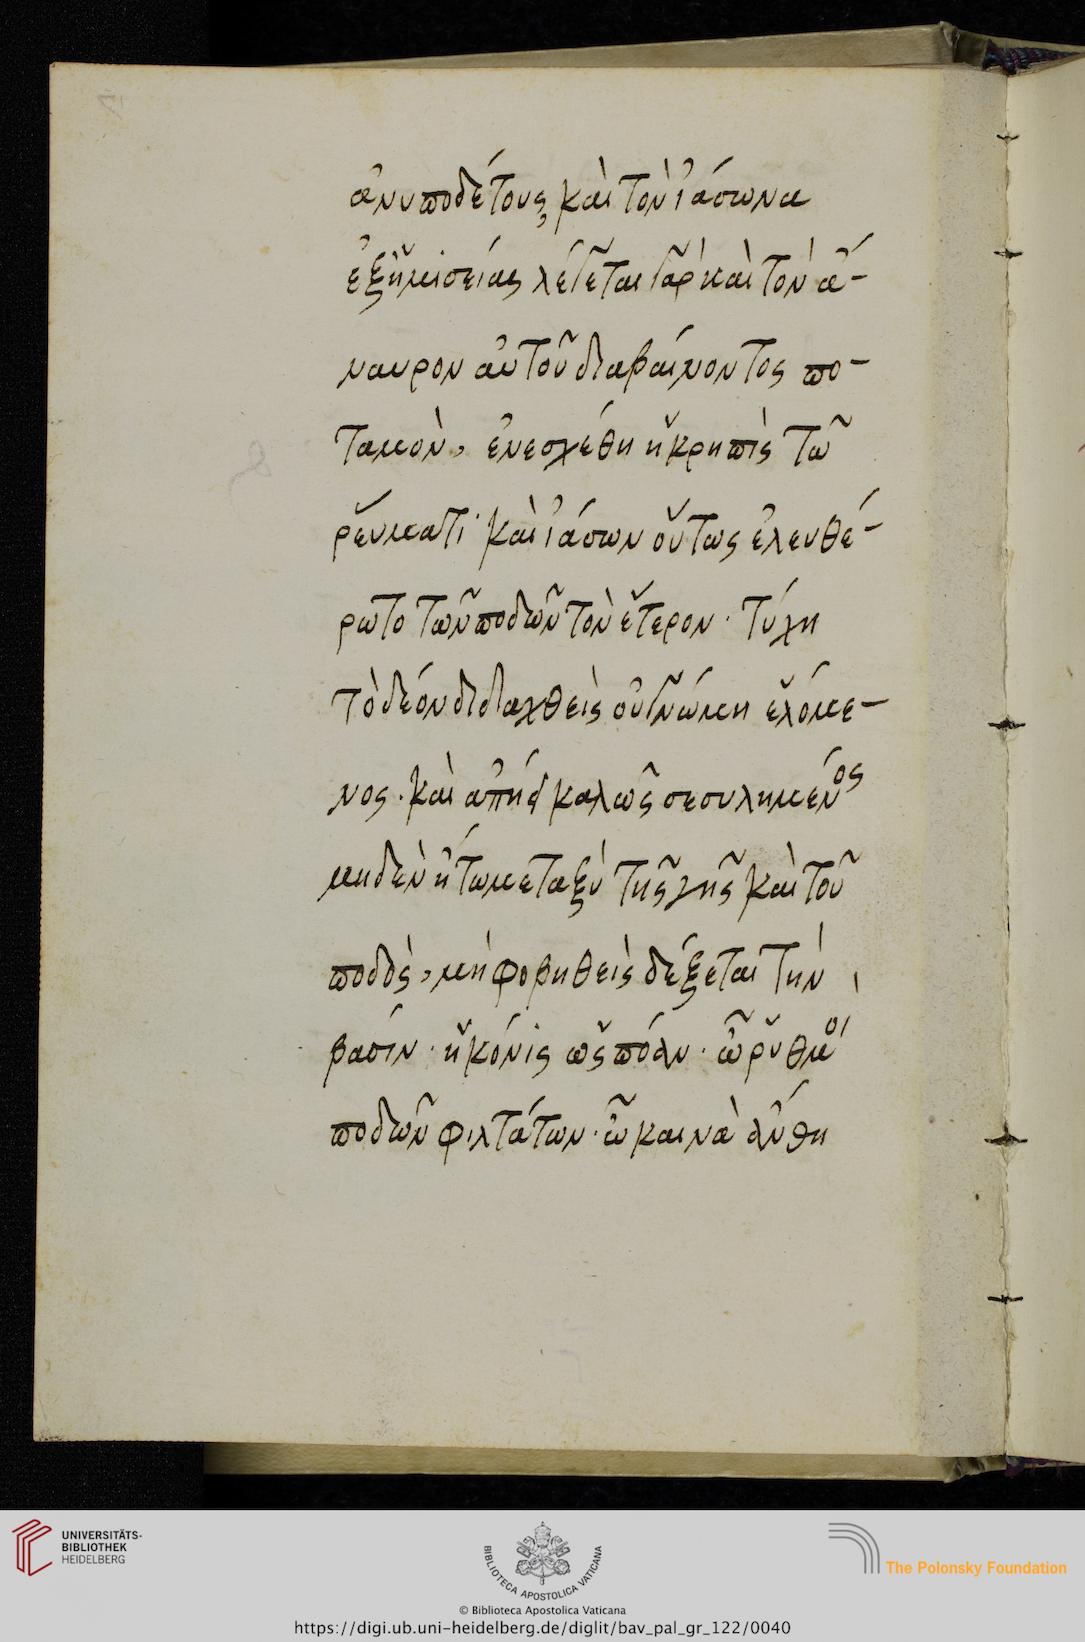 ἀνυποδέτους, καὶ τὸν ἰάσωνα
ἐξ ἡμισείας λέγεται γὰρ καὶ τὸν ἄ-
ναυρον αὐτοῦ διαβαίνοντος πο-
ταμὸν, ἐνεσχέθη ἡ κρηπὶς τῶ
ῥεύματι· καὶ ἰάσων οὕτως ἐλευθέ-
ρωτο τῶν ποδῶν τὸν ἕτερον. τύχη
τὸ δέον διδαχθεὶς οὐ γνώμη ἑλόμε-
νος. καὶ ἀπήει καλῶς σεσυλημένος
μηδὲν ἔστω μεταξὺ τῆς γῆς καὶ τοῦ
ποδὸς, μὴ φοβηθεὶς δέξεται τὴν
βάσιν. ἡ κόνις ὡς πόαν. ὦ ῥυθμοὶ
ποδῶν φιλτάτων. ὦ καινὰ ἄνθη
UNIVERSITÄTS-
BIBLIOTHEK
HEIDELBERG
BIBLIOTECA APOSTOLICA VATICANA
The Polonsky Foundation
© Biblioteca Apostolica Vaticana
https://digi.ub.uni-heidelberg.de/diglit/bav_pal_gr_122/0040